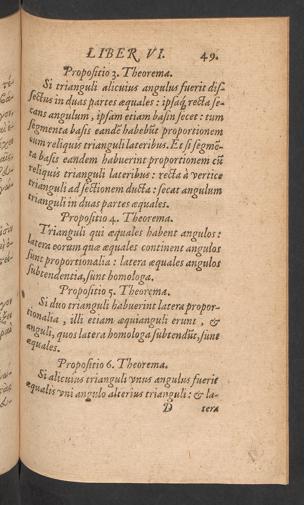 LIBER VI. 49.
Propositio 3. Theorema.
Si trianguli alicuius angulus fuerit dis-
sectus in duas partes æquales: ipsáq́; recta se-
cans angulum, ipsam etiam basin secet: tum
segmenta basis eandē habebūt proportionem
cum reliquis trianguli lateribus. Et si segmē-
ta basis eandem habuerint proportionem cū
reliquis trianguli lateribus: recta à vertice
trianguli ad sectionem ducta: secat angulum
trianguli in duas partes æquales.
Propositio 4. Theorema.
Trianguli qui æquales habent angulos:
latera eorum quæ æquales continent angulos
sunt proportionalia: latera æquales angulos
subtendentia, sunt homologa.
Propositio 5. Theorema.
Si duo trianguli habuerint latera propor-
tionalia, illi etiam æquianguli erunt, &
anguli, quos latera homologa subtendūt, sunt
æquales.
Propositio 6. Theorema.
Si alicuius trianguli vnus angulus fuerit
æqualis vni angulo alterius trianguli: & la-
D tera